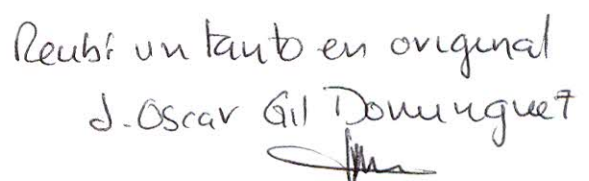 Recibí un tanto en original
J. Oscar Gil Dominguez